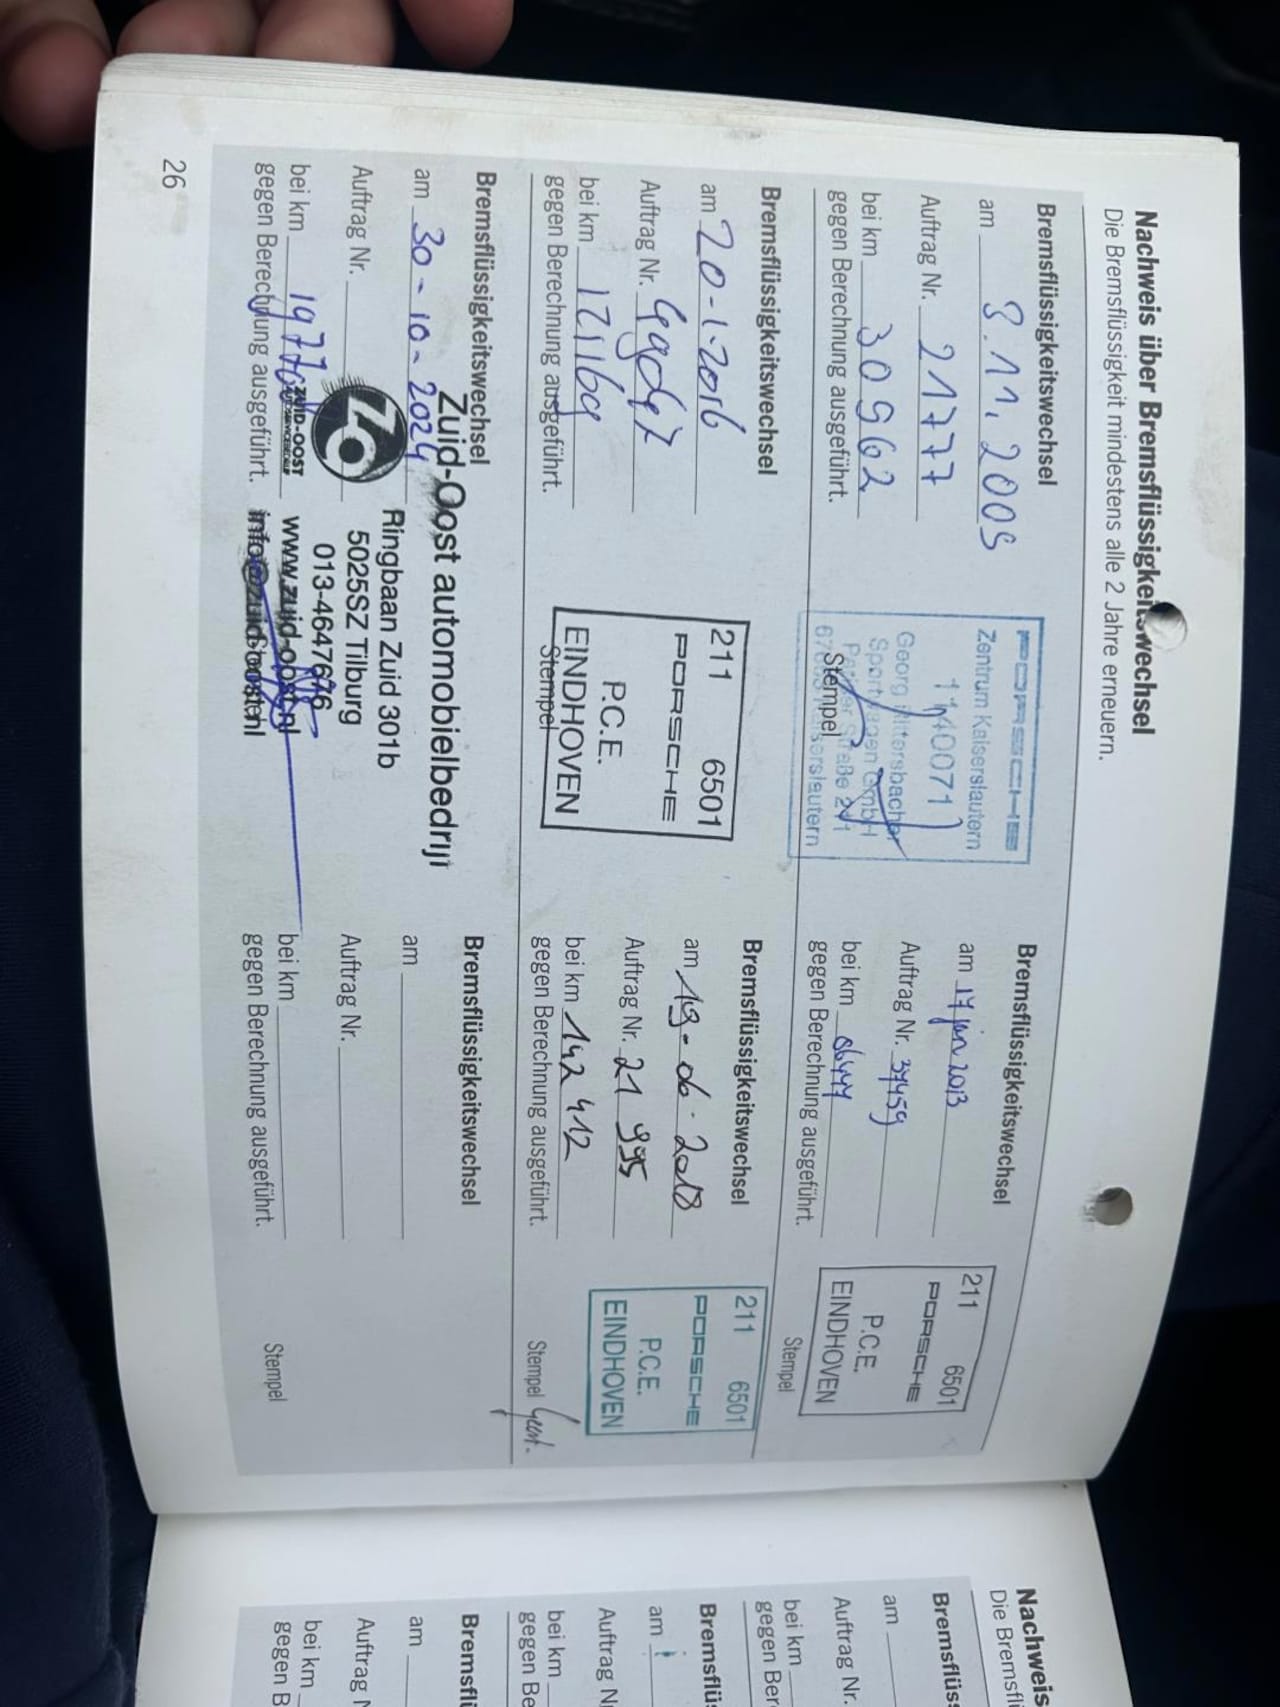 Nachweis über Bremsflüssigkeitswechsel
Die Bremsflüssigkeit mindestens alle 2 Jahre erneuern.
Bremsflüssigkeitswechsel
am 3.11.2009
Auftrag Nr. 21777
bei km 30962
gegen Berechnung ausgeführt.
PORSCHE
Zentrum Kaiserslautern
1140071
Georg Rittersbacher
Sportwagen GmbH
Straße
Kaiserslautern
Stempel
Bremsflüssigkeitswechsel
am 17 jan 2013
Auftrag Nr. 37459
bei km
gegen Berechnung ausgeführt.
211 6501
PORSCHE
P.C.E.
EINDHOVEN
Stempel
Bremsflüssigkeitswechsel
am 20-1-2016
Auftrag Nr.
bei km 121169
gegen Berechnung ausgeführt.
211 6501
PORSCHE
P.C.E.
EINDHOVEN
Stempel
Bremsflüssigkeitswechsel
am 19-06-2018
Auftrag Nr. 21 995
bei km 142 412
gegen Berechnung ausgeführt.
211 6501
PORSCHE
P.C.E.
EINDHOVEN
Stempel
Bremsflüssigkeitswechsel
am 30-10-2024
Auftrag Nr.
bei km 197768
gegen Berechnung ausgeführt.
ZO
ZUID-OOST
Zuid-Oost automobielbedrijf
Ringbaan Zuid 301b
5025SZ Tilburg
013-4647676
www.zuid-oost.nl
info@zuid-oost.nl
Stempel
Bremsflüssigkeitswechsel
am
Auftrag Nr.
bei km
gegen Berechnung ausgeführt.
Stempel
26
Nachweis
Die Bremsfl
Bremsflüss
am
Auftrag Nr.
bei km
gegen Ber
Bremsflüs
am
Auftrag N
bei km
gegen Be
Bremsfl
am
Auftrag N
bei km
gegen B